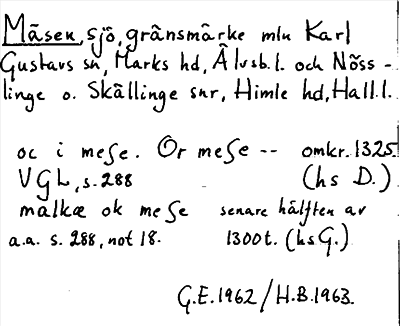 Måsen, sjö, gränsmärke mln Karl
Gustavs sn, Marks hd, Älvsb.l. och Nöss-
linge o. Skällinge snr, Himle hd, Hall.l.
oc i meſe. Or meſe -- omkr. 1325.
VGL, s. 288 (hs D.)
malkæ ok meſe senare hälften av
a.a. s. 288, not 18. 1300 t. (hs G.)
G.E. 1962 / H.B. 1963.